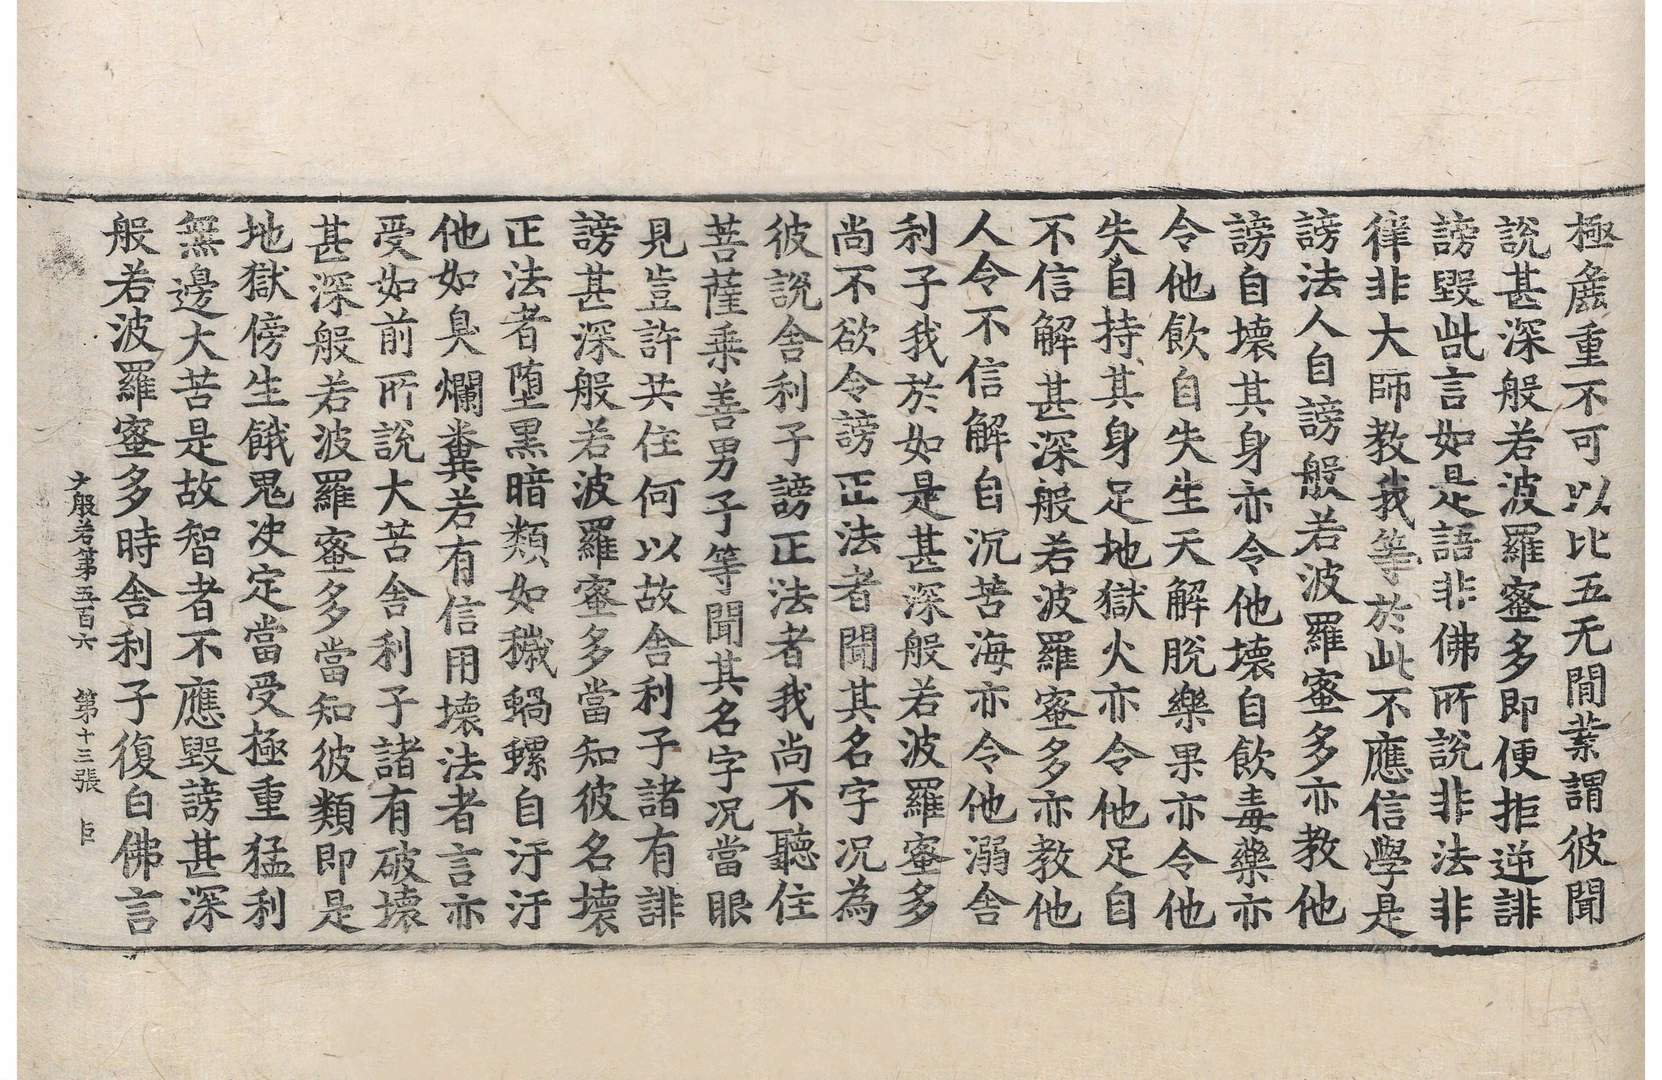 極麁重不可以比五无間業謂彼聞
說甚深般若波羅蜜多即便拒逆誹
謗毀呰言如是語非佛所說非法非
律非大師教我等於此不應信學是
謗法人自謗般若波羅蜜多亦教他
謗自壞其身亦令他壞自飲毒藥亦
令他飲自失生天解脫樂果亦令他
失自持其身足地獄火亦令他足自
不信解甚深般若波羅蜜多亦教他
人令不信解自沉苦海亦令他溺舍
利子我於如是甚深般若波羅蜜多
尚不欲令謗正法者聞其名字况為
彼說舍利子謗正法者我尚不聽住
菩薩乘善男子等聞其名字况當眼
見豈許共住何以故舍利子諸有誹
謗甚深般若波羅蜜多當知彼名壞
正法者墮黑暗類如穢蝸螺自汙汙
他如臭爛糞若有信用壞法者言亦
受如前所說大苦舍利子諸有破壞
甚深般若波羅蜜多當知彼類即是
地獄傍生餓鬼决定當受極重猛利
無邊大苦是故智者不應毀謗甚深
般若波羅蜜多時舍利子復白佛言
大般若第五百六 第十三張